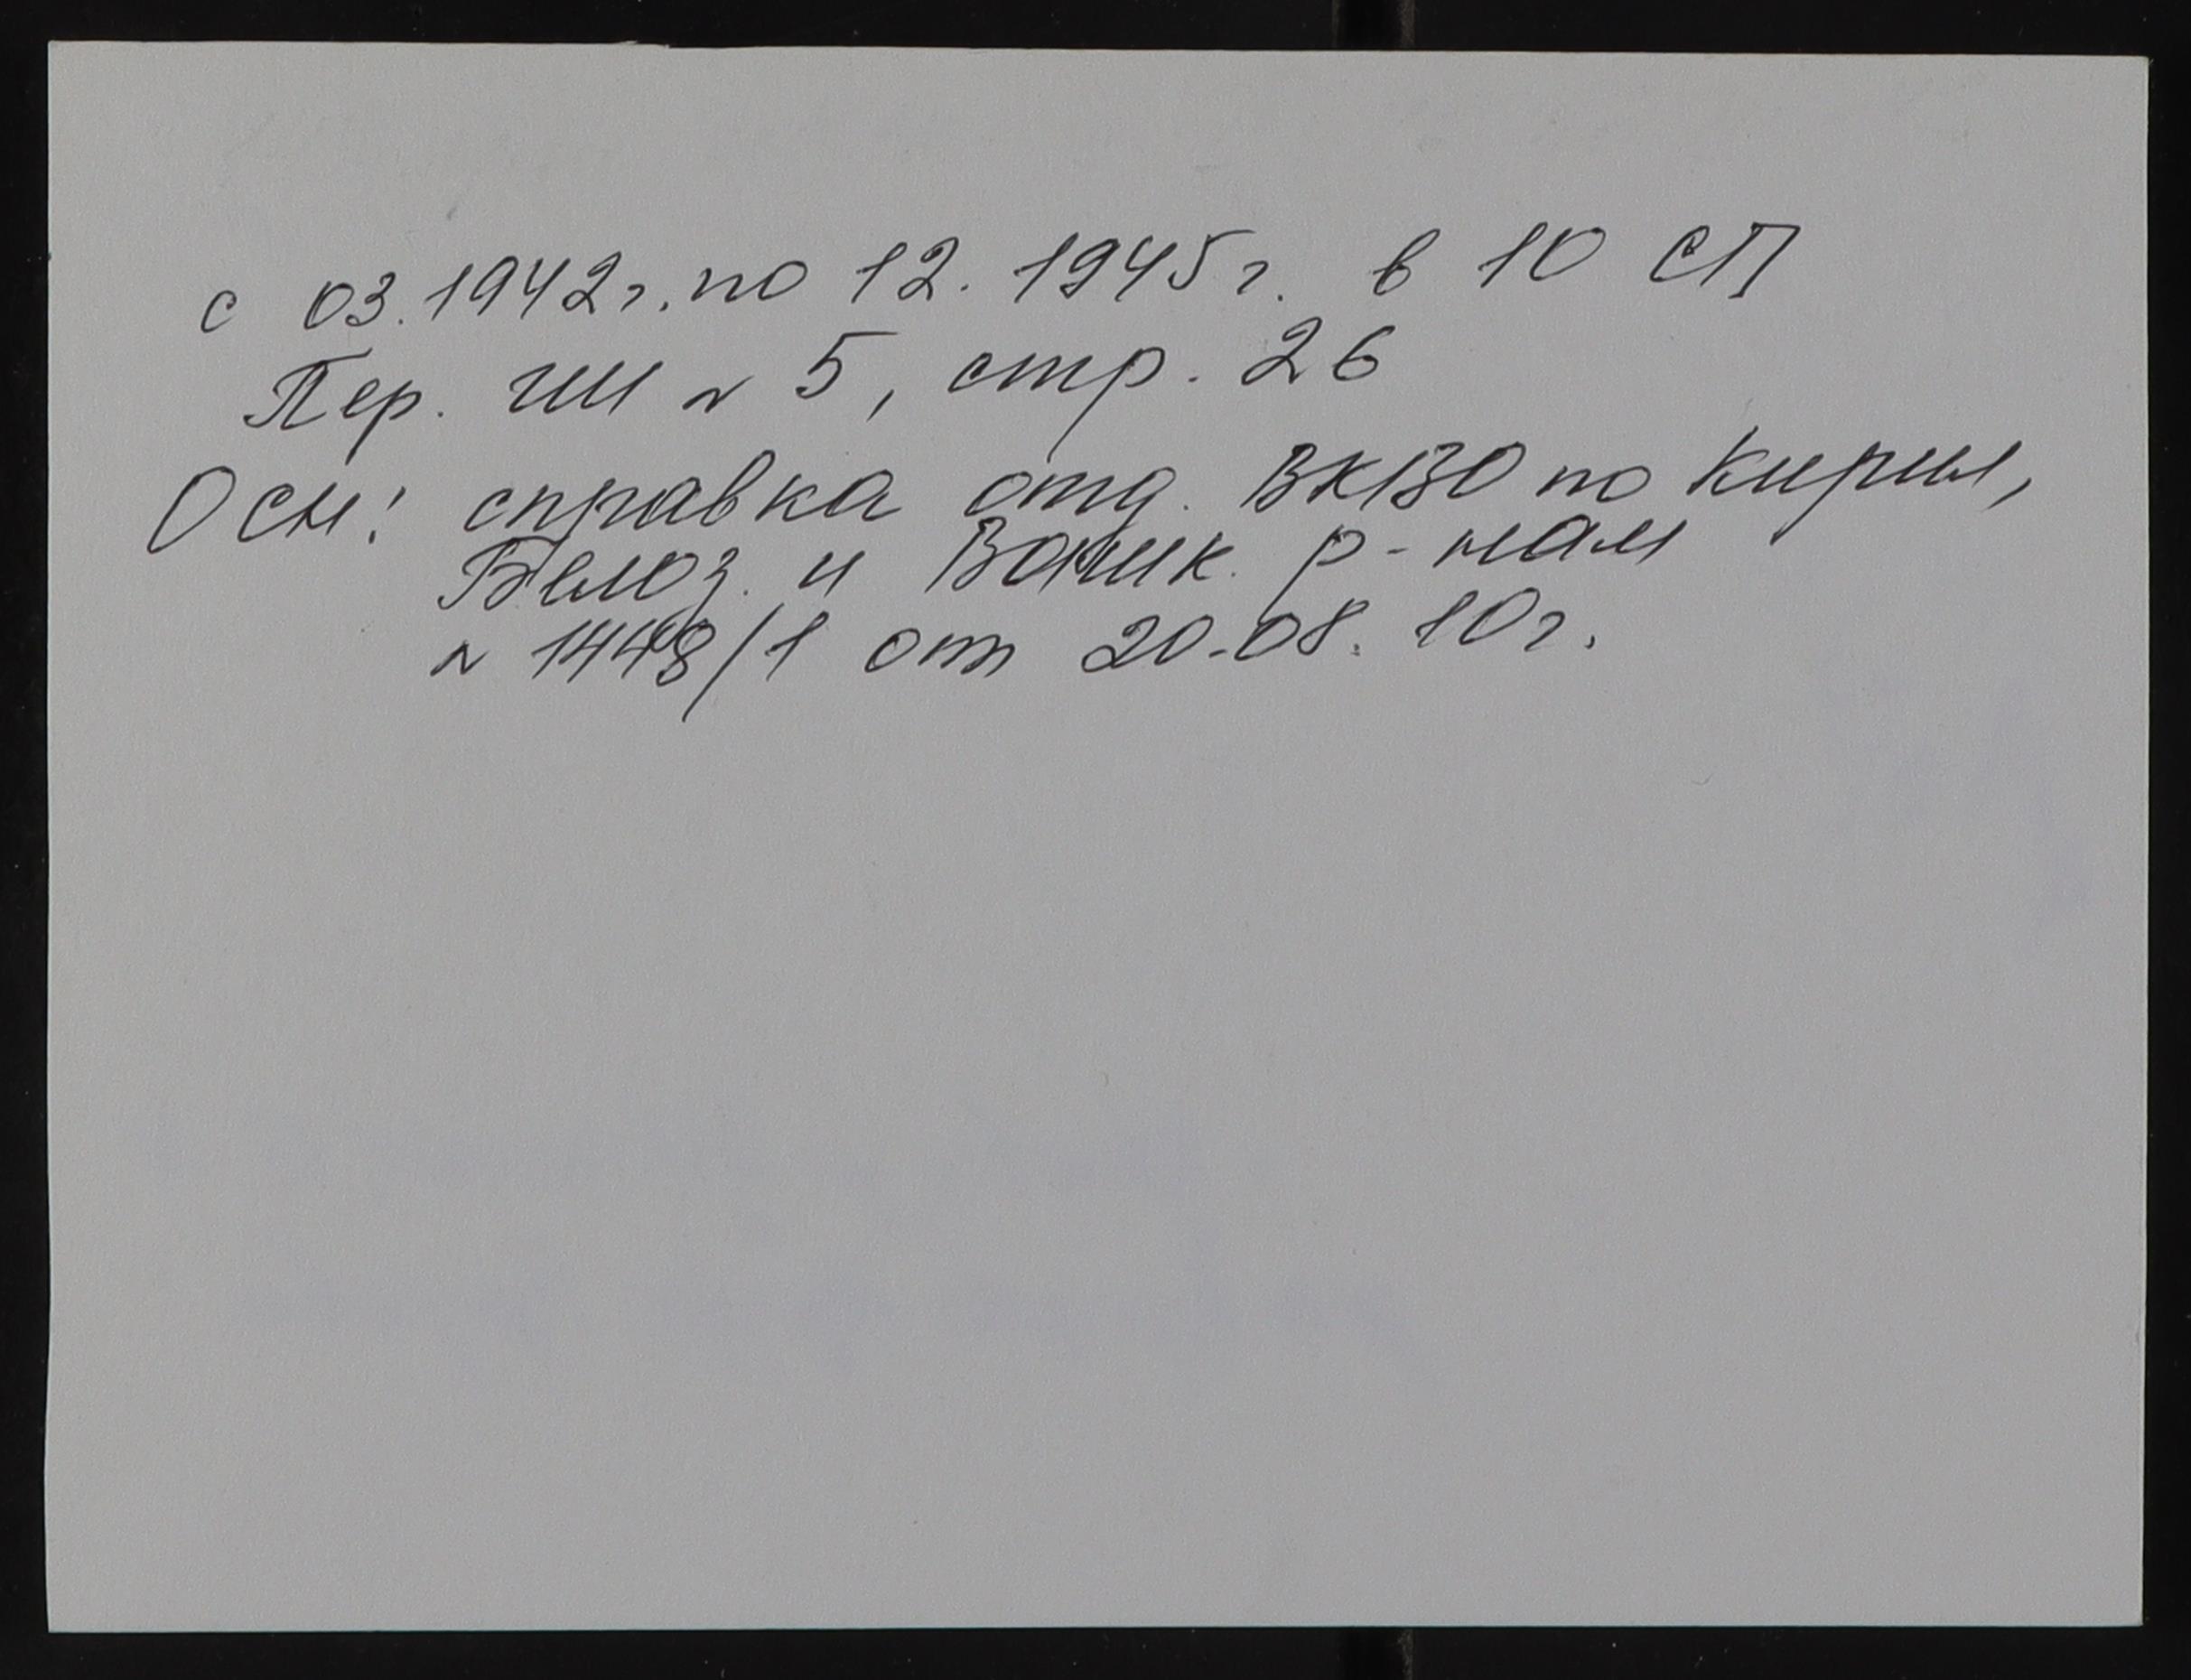 с 03.1942г. по 12.1945г. в 10 СП
Пер. ГШ № 5, стр. 26
Осн: справка отд. ВКВО по Кирил,
Белоз. и Вашк. р-нам
№ 1448/1 от 20.08.10г.